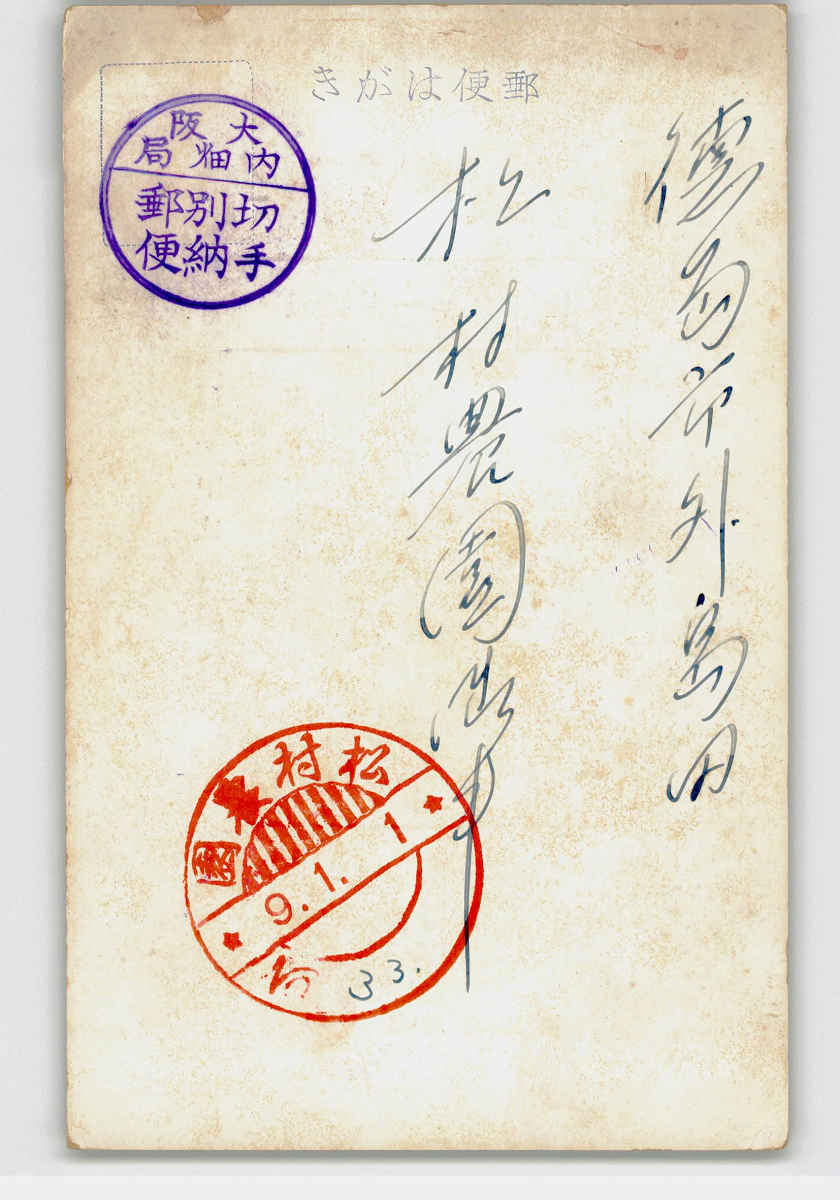 郵便はがき
徳島市外島田
松村農園御中
大阪
内畑局
切手
別納
郵便
松村農園
9.1.1
33.